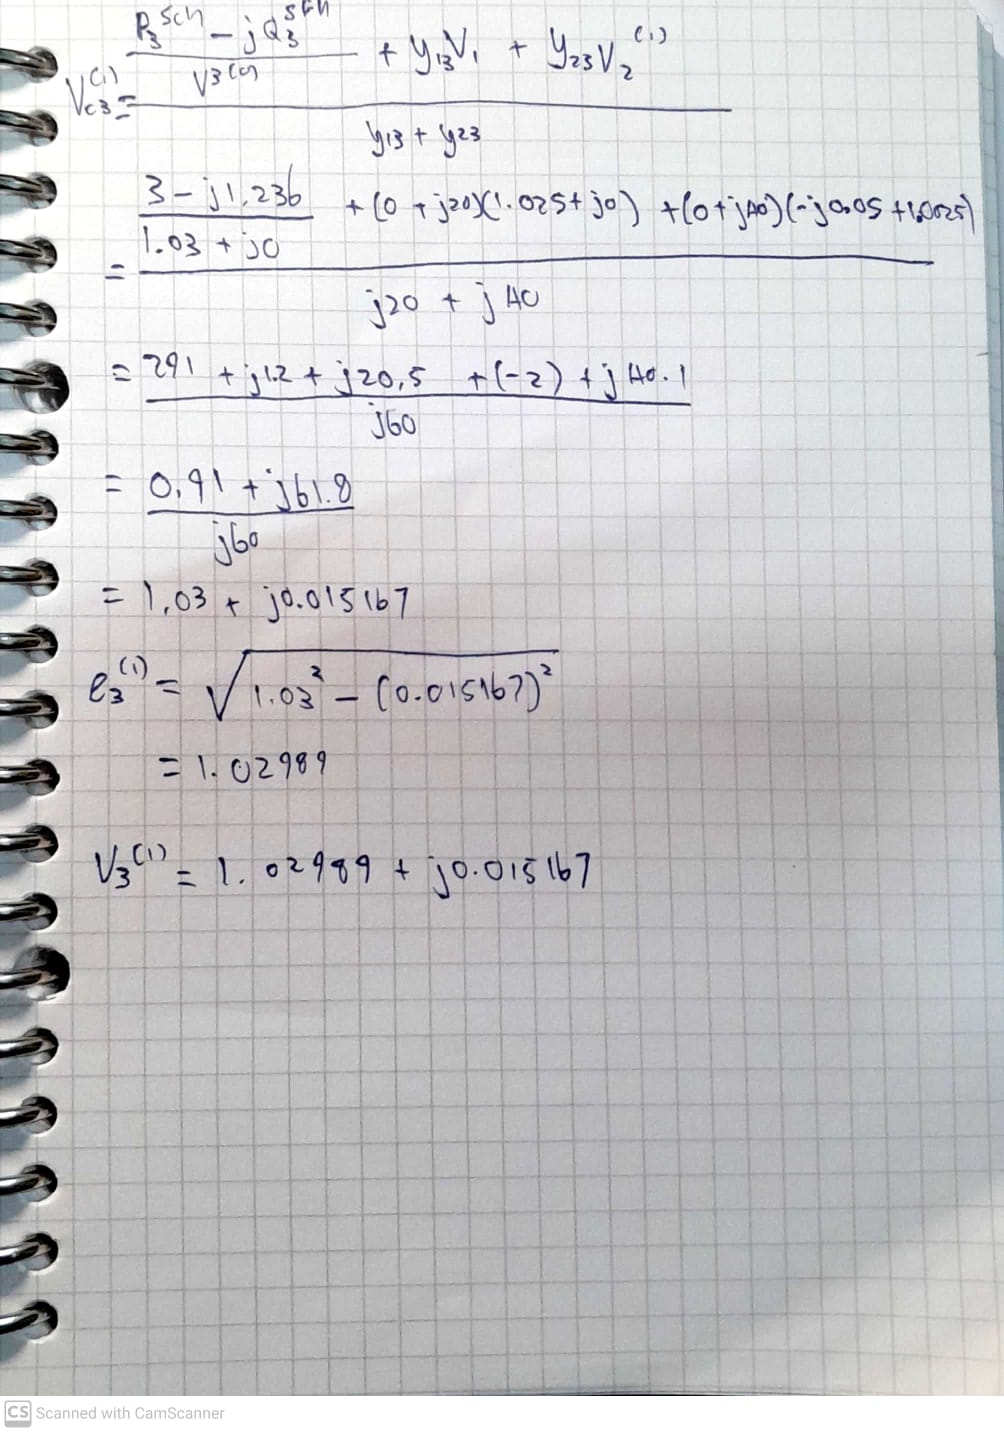 P₃ˢᶜʰ - jQ₃ˢᶜʰ
V₃⁽⁰⁾
+ y₁₃V₁ + y₂₃V₂⁽¹⁾
Vc₃⁽¹⁾ =
y₁₃ + y₂₃
3 - j1,236
1.03 + j0
+ (0 + j20)(1.025 + j0) + (0 + j40)(-j0.05 + 1,0025)
=
j20 + j40
= 291 + j1.2 + j20,5 + (-2) + j40.1
j60
= 0,91 + j61.8
j60
= 1,03 + j0.015167
e₃⁽¹⁾ = √1.03² - (0.015167)²
= 1.02989
V₃⁽¹⁾ = 1.02989 + j0.015167
CS Scanned with CamScanner